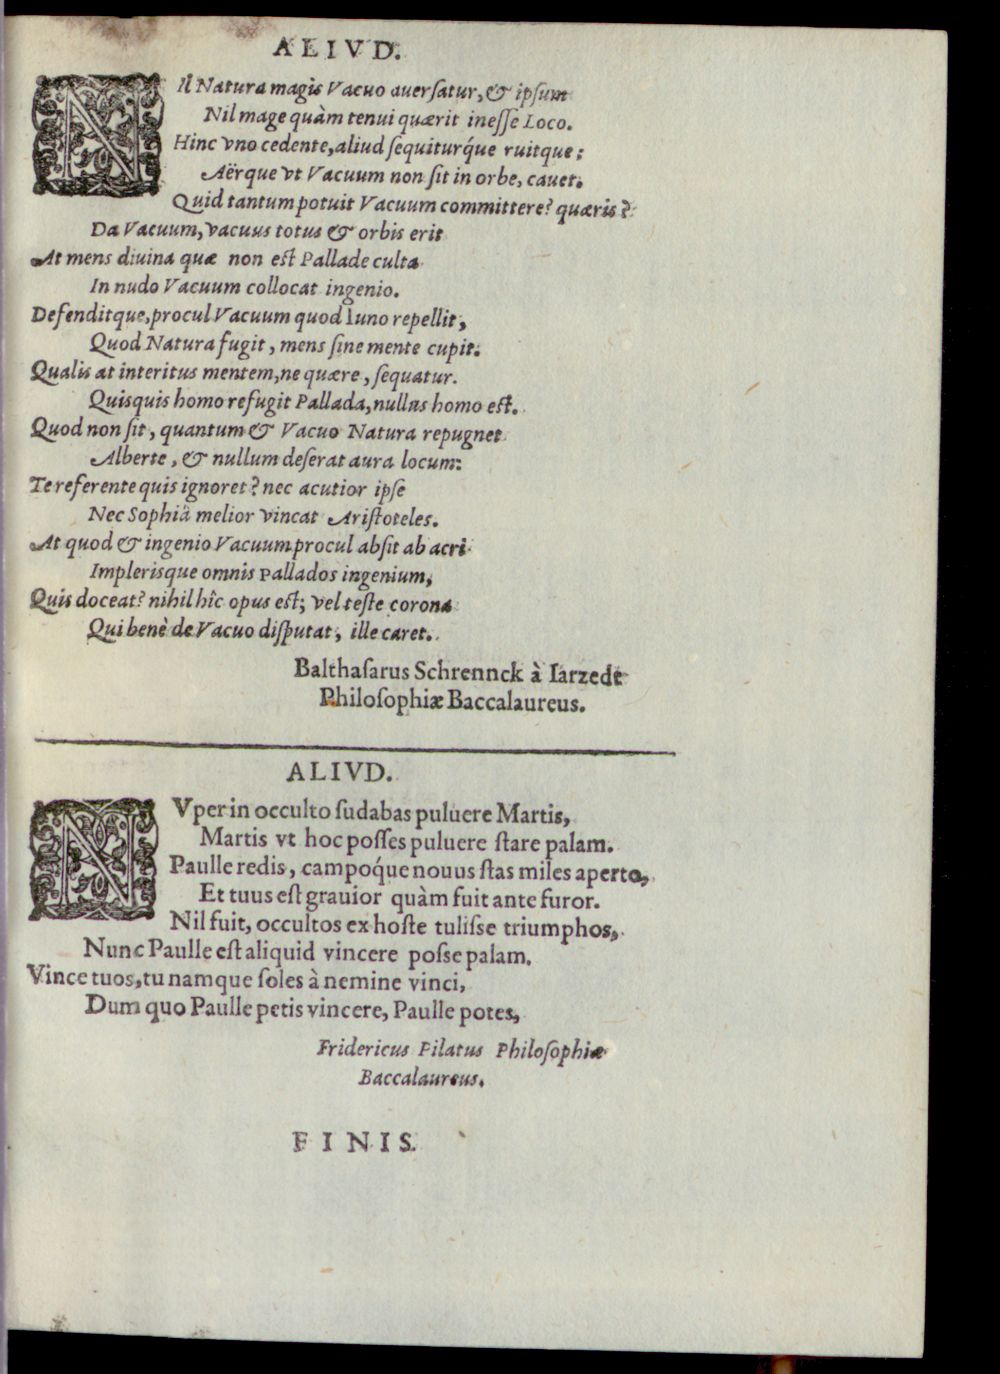 ALIVD.
NIl Natura magis Vacuo auersatur, & ipsum
Nil mage quàm tenui quærit inesse Loco.
Hinc vno cedente, aliud sequiturq́ue ruitque;
Aërque vt Vacuum non sit in orbe, cauet.
Quid tantum potuit Vacuum committere? quæris?
Da Vacuum, vacuus totus & orbis erit
At mens diuina quæ non est Pallade culta
In nudo Vacuum collocat ingenio.
Defenditque, procul Vacuum quod Iuno repellit,
Quod Natura fugit, mens sine mente cupit.
Qualis at interitus mentem, ne quære, sequatur.
Quisquis homo refugit Pallada, nullus homo est.
Quod non sit, quantum & Vacuo Natura repugnet
Alberte, & nullum deserat aura locum:
Te referente quis ignoret? nec acutior ipse
Nec Sophiâ melior vincat Aristoteles.
At quod & ingenio Vacuum procul absit ab acri
Implerisque omnis Pallados ingenium,
Quis doceat? nihil hîc opus est; vel teste corona
Qui benè de Vacuo disputat, ille caret.
Balthasarus Schrennck à Iarzedt
Philosophiæ Baccalaureus.
ALIVD.
NVper in occulto sudabas puluere Martis,
Martis vt hoc posses puluere stare palam.
Paulle redis, campoq́ue nouus stas miles aperto,
Et tuus est grauior quàm fuit ante furor.
Nil fuit, occultos ex hoste tulisse triumphos,
Nunc Paulle est aliquid vincere posse palam.
Vince tuos, tu namque soles à nemine vinci,
Dum quo Paulle petis vincere, Paulle potes,
Fridericus Pilatus Philosophiæ
Baccalaureus.
FINIS.